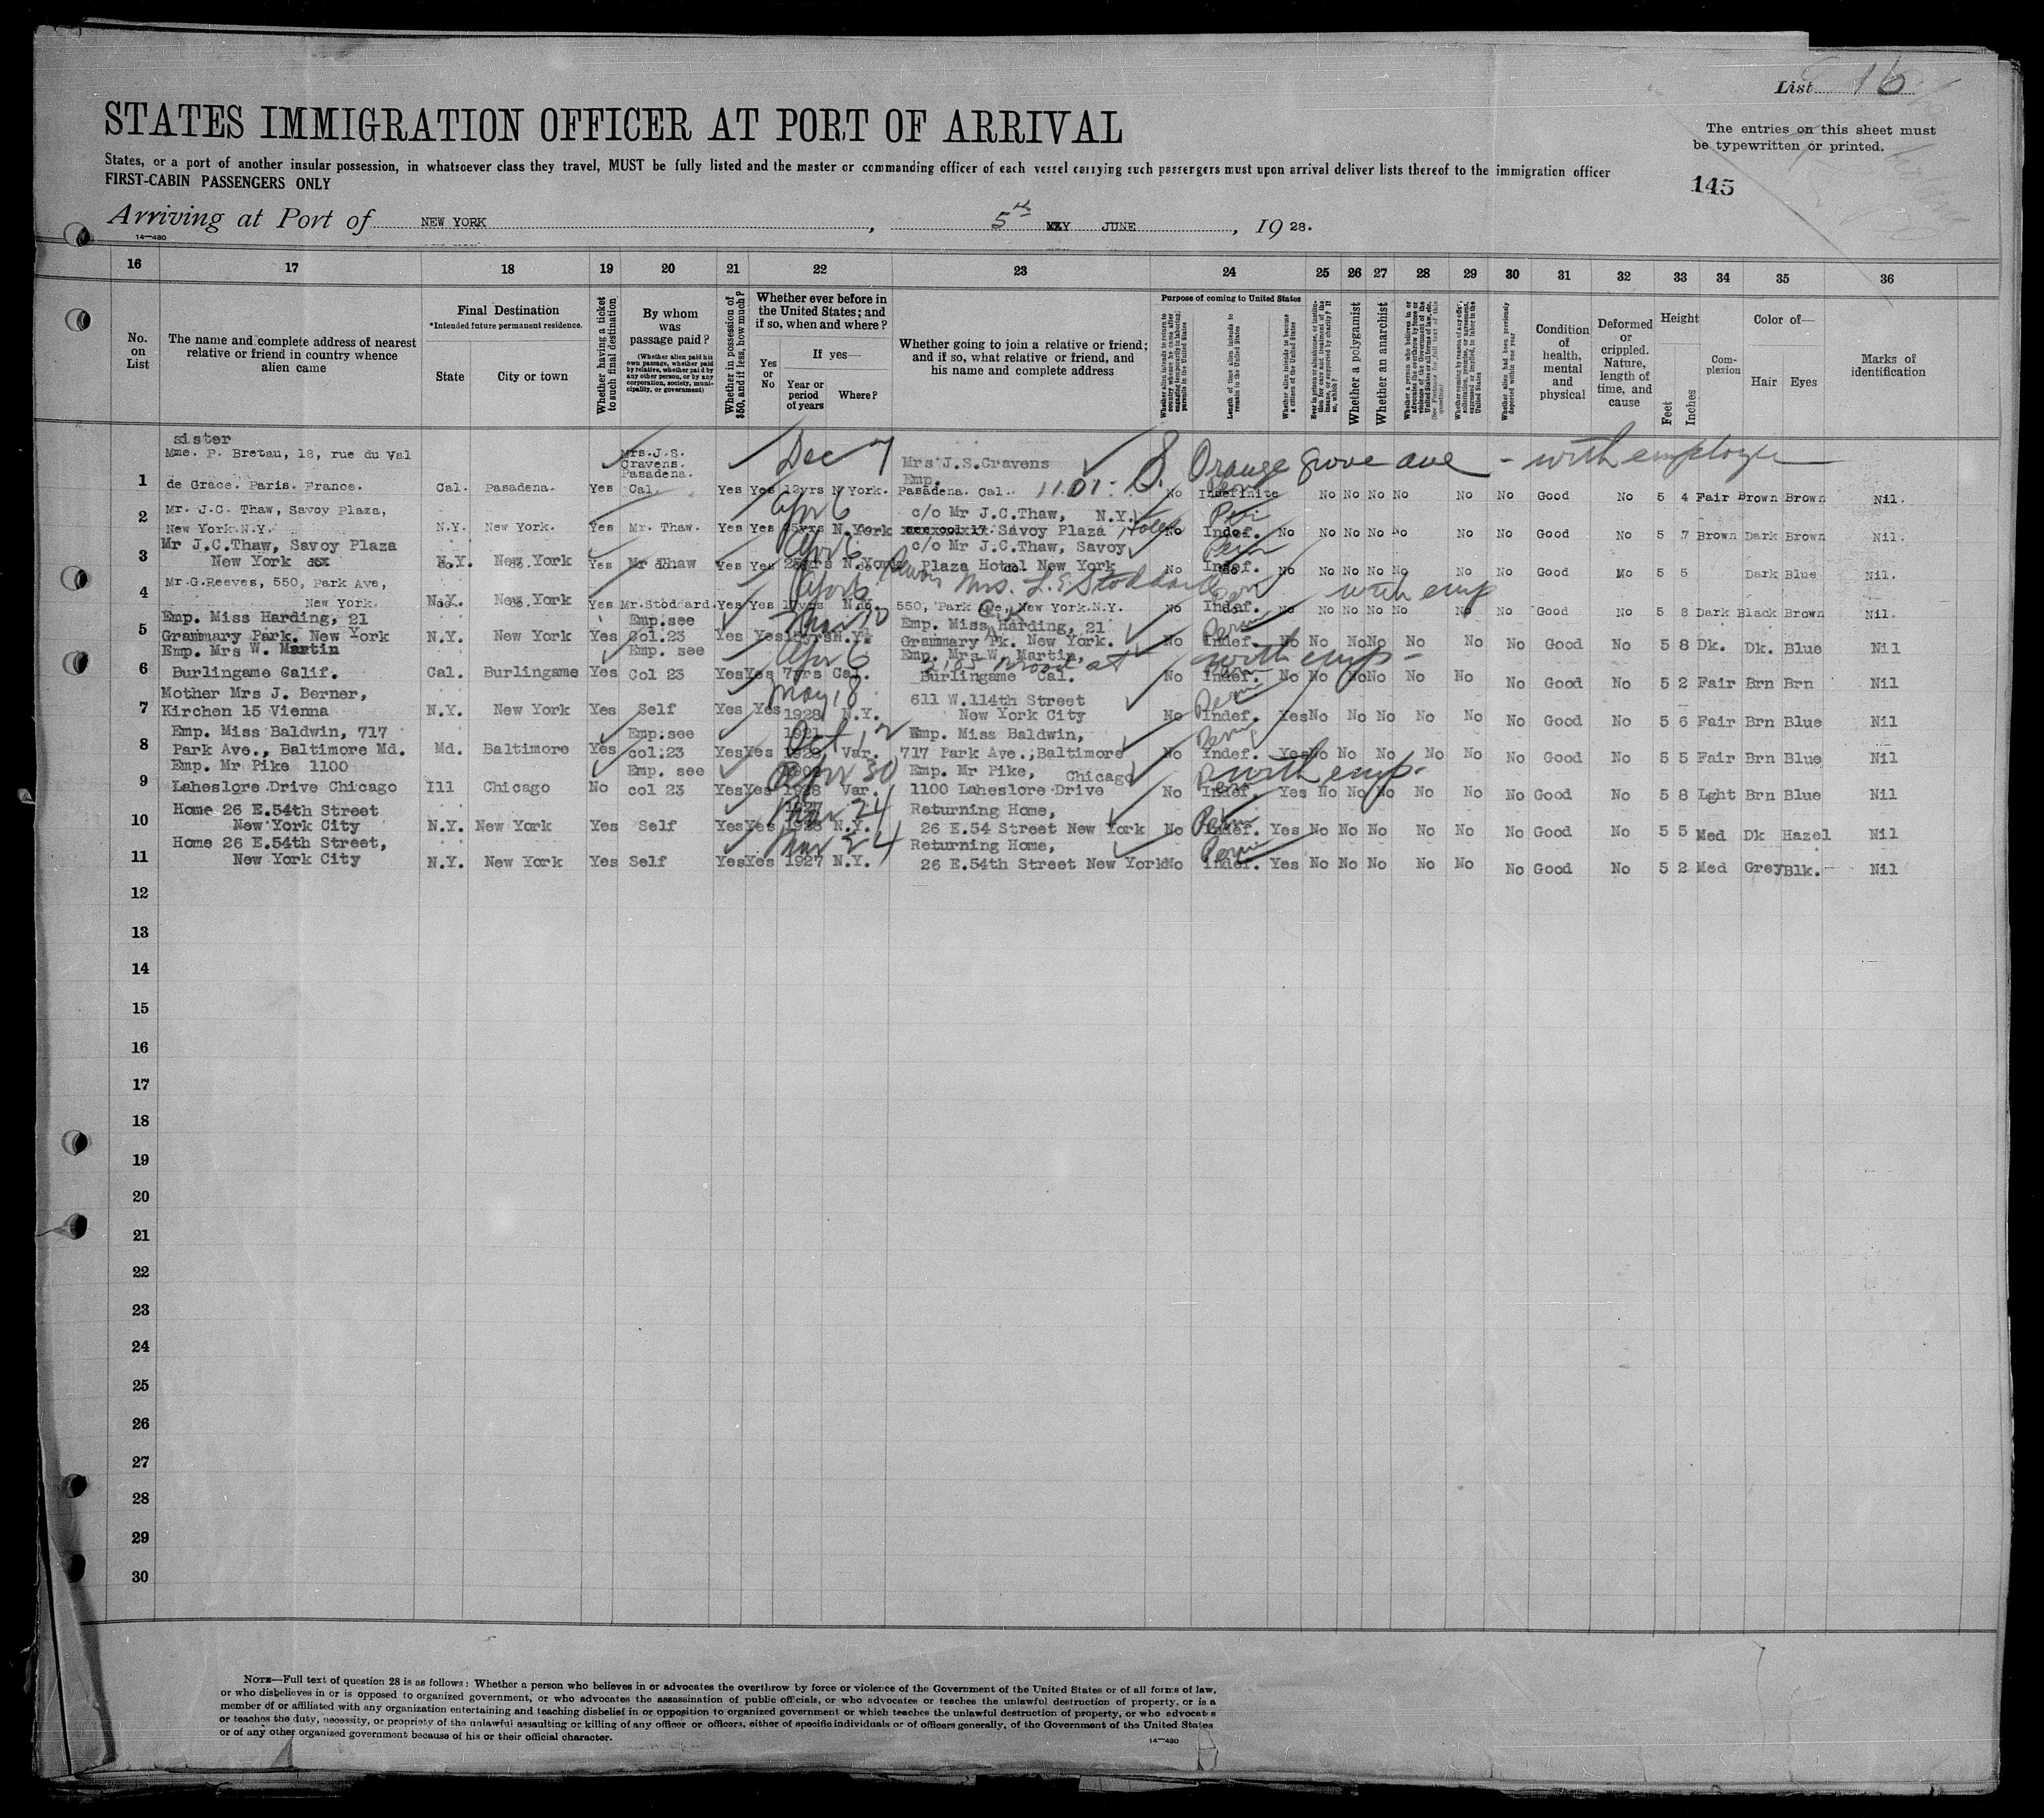 List 16
STATES IMMIGRATION OFFICER AT PORT OF ARRIVAL
The entries on this sheet must
be typewritten or printed.
States, or a port of another insular possession, in whatsoever class they travel, MUST be fully listed and the master or commanding officer of each vessel carrying such passengers must upon arrival deliver lists thereof to the immigration officer
FIRST-CABIN PASSENGERS ONLY
145
Arriving at Port of NEW YORK, 5th JUNE, 1928.
14—430
16 17 18 19 20 21 22 23 24 25 26 27 28 29 30 31 32 33 34 35 36
No. on List
The name and complete address of nearest relative or friend in country whence alien came
Final Destination
*Intended future permanent residence.
State City or town
Whether having a ticket to such final destination
By whom was passage paid?
(Whether alien paid his own passage, whether paid by relative, whether paid by any other person, or by any corporation, society, municipality, or government)
Whether in possession of $50, and if less, how much?
Whether ever before in the United States; and if so, when and where?
Yes or No
If yes—
Year or period of years
Where?
Whether going to join a relative or friend; and if so, what relative or friend, and his name and complete address
Purpose of coming to United States
Length of time alien intends to remain in the United States
Whether alien intends to become a citizen of the United States
Whether a polygamist
Whether an anarchist
Whether alien had been previously deported within one year
Condition of health, mental and physical
Deformed or crippled. Nature, length of time, and cause
Height
Feet Inches
Complexion
Color of—
Hair Eyes
Marks of identification
sister
Mme. P. Bretau, 18, rue du Val Mrs.J.S. Cravens. Pasadena. Dec 7 Mrs J.S.Cravens S. Orange Grove ave - with employer
1 de Grace. Paris. France. Cal. Pasadena. Yes Cal. Yes Yes 12yrs N York. Emp. Pasadena. Cal. 1101 No Indefinite No No No No No No Good No 5 4 Fair Brown Brown Nil.
2 Mr. J.C. Thaw, Savoy Plaza, Apr 6 c/o Mr J.C.Thaw, N.Y.
New York.N.Y. N.Y. New York. Yes Mr. Thaw. Yes Yes 25yrs N.York Savoy Plaza Hotel No Indef. No No No No No No No Good No 5 7 Brown Dark Brown Nil.
3 Mr J.C.Thaw, Savoy Plaza Apr 6 c/o Mr J.C.Thaw, Savoy
New York N.Y. New York Yes Mr Thaw Yes Yes 25yrs N.York Plaza Hotel New York No Indef. No No No No No No No Good No 5 5 Dark Blue Nil.
4 Mr.G.Reeves, 550, Park Ave, Apr 6 Mrs. L.E Stoddard with emp
New York. N.Y. New York Yes Mr.Stoddard. Yes Yes 550, Park Ave, New York.N.Y. No Indef. No No No No No No No Good No 5 8 Dark Black Brown Nil.
5 Emp. Miss Harding, 21 Emp.see Emp. Miss Harding, 21
Grammary Park. New York N.Y. New York Yes Col.23 Yes Yes 15yrs N.Y. Grammary Pk. New York. No Indef. No No No No No No No Good No 5 8 Dk. Dk. Blue Nil
6 Emp. Mrs W. Martin Emp. see Apr 6 Emp. Mrs W. Martin, with emp-
Burlingame Galif. Cal. Burlingame Yes Col 23 Yes Yes 7yrs Cal. Burlingame Cal. No Indef. No No No No No No No Good No 5 2 Fair Brn Brn Nil
7 Mother Mrs J. Berner, May 18 611 W.114th Street Perm
Kirchen 15 Vienna N.Y. New York Yes Self Yes Yes 1928 N.Y. New York City No Indef. Yes No No No No No No Good No 5 6 Fair Brn Blue Nil
8 Emp. Miss Baldwin, 717 Emp.see 1921 Oct 12 Emp. Miss Baldwin, Perm
Park Ave., Baltimore Md. Md. Baltimore Yes col.23 Yes Yes Var. 717 Park Ave.,Baltimore No Indef. Yes No No No No No No Good No 5 5 Fair Brn Blue Nil
9 Emp. Mr Pike 1100 Emp. see Apr 30 Emp. Mr Pike, Chicago with emp-
Laheslore Drive Chicago Ill Chicago No col 23 Yes Yes 1928 Var. 1100 Laheslore Drive No Indef. Yes No No No No No No Good No 5 8 Lght Brn Blue Nil
10 Home 26 E.54th Street 1927 Mar 24 Returning Home, Perm
New York City N.Y. New York Yes Self Yes Yes 1928 N.Y. 26 E.54 Street New York No Indef. Yes No No No No No No Good No 5 5 Med Dk Hazel Nil
11 Home 26 E.54th Street, Mar 24 Returning Home, Perm
New York City N.Y. New York Yes Self Yes Yes 1927 N.Y. 26 E.54th Street New York No indef. Yes No No No No No No Good No 5 2 Med Grey Blk. Nil
12
13
14
15
16
17
18
19
20
21
22
23
24
25
26
27
28
29
30
NOTE—Full text of question 28 is as follows: Whether a person who believes in or advocates the overthrow by force or violence of the Government of the United States or of all forms of law,
or who disbelieves in or is opposed to organized government, or who advocates the assassination of public officials, or who advocates or teaches the unlawful destruction of property, or is a
member of or affiliated with any organization entertaining and teaching disbelief in or opposition to organized government or which teaches the unlawful destruction of property, or who advocates
or teaches the duty, necessity, or propriety of the unlawful assaulting or killing of any officer or officers, either of specific individuals or of officers generally, of the Government of the United States
or of any other organized government because of his or their official character.
14—430